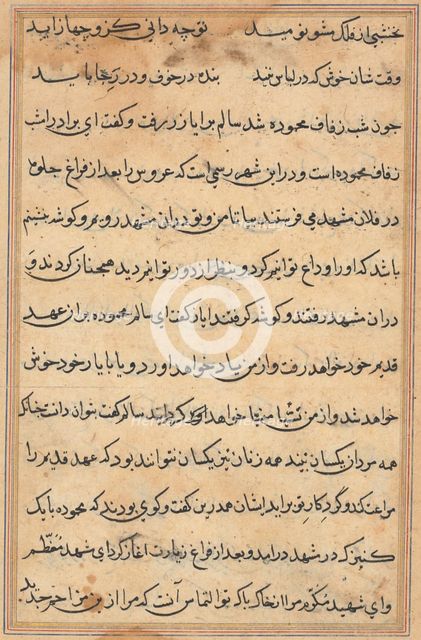 نخشبی از فلک مشو نومید توچه دانی کزو چها زاید
وقت شان خوش که در لباس بنند بنده در خوف و در رجا باید
جون شب زفاف محموده شد سالم برایاز رفت و کفت ای برادر امشب
زفاف محموده است و در این شهر رسمی است که عروس را بعد از فراغ جلوه
در فلان مشهد می فرستند بیا تا من و تو در ان مشهد رویم و کوشه بنشینیم
باشد که او را وداع توانیم کرد و بنظر از دور توانیم دید همجنان کردند و
در ان مشهد رفتند و کوشه کرفتند ایاز کفت ای سالم محموده بر از عهد
قدیم خود خواهد رفت و از من یاد خواهد اورد و یا با یار خود خوش
خواهد شد و از من خواهد کردانید سالم کفت توان دانت جنانکه
همه مردان یکسان نیند همه زنان نیز یکسان نتوانند بود که عهد قدیم را
مراعت کند و کرد کار تو براید ایشان همدرین کفت و کوی بودند که محموده با یک
کنیزک در مشهد در امد و بعد از فراغ زیارت اغاز کرد ای شهید معظم
و ای شهید مکرم مرا از خاک پاک تو التماس آنست که مرا از من